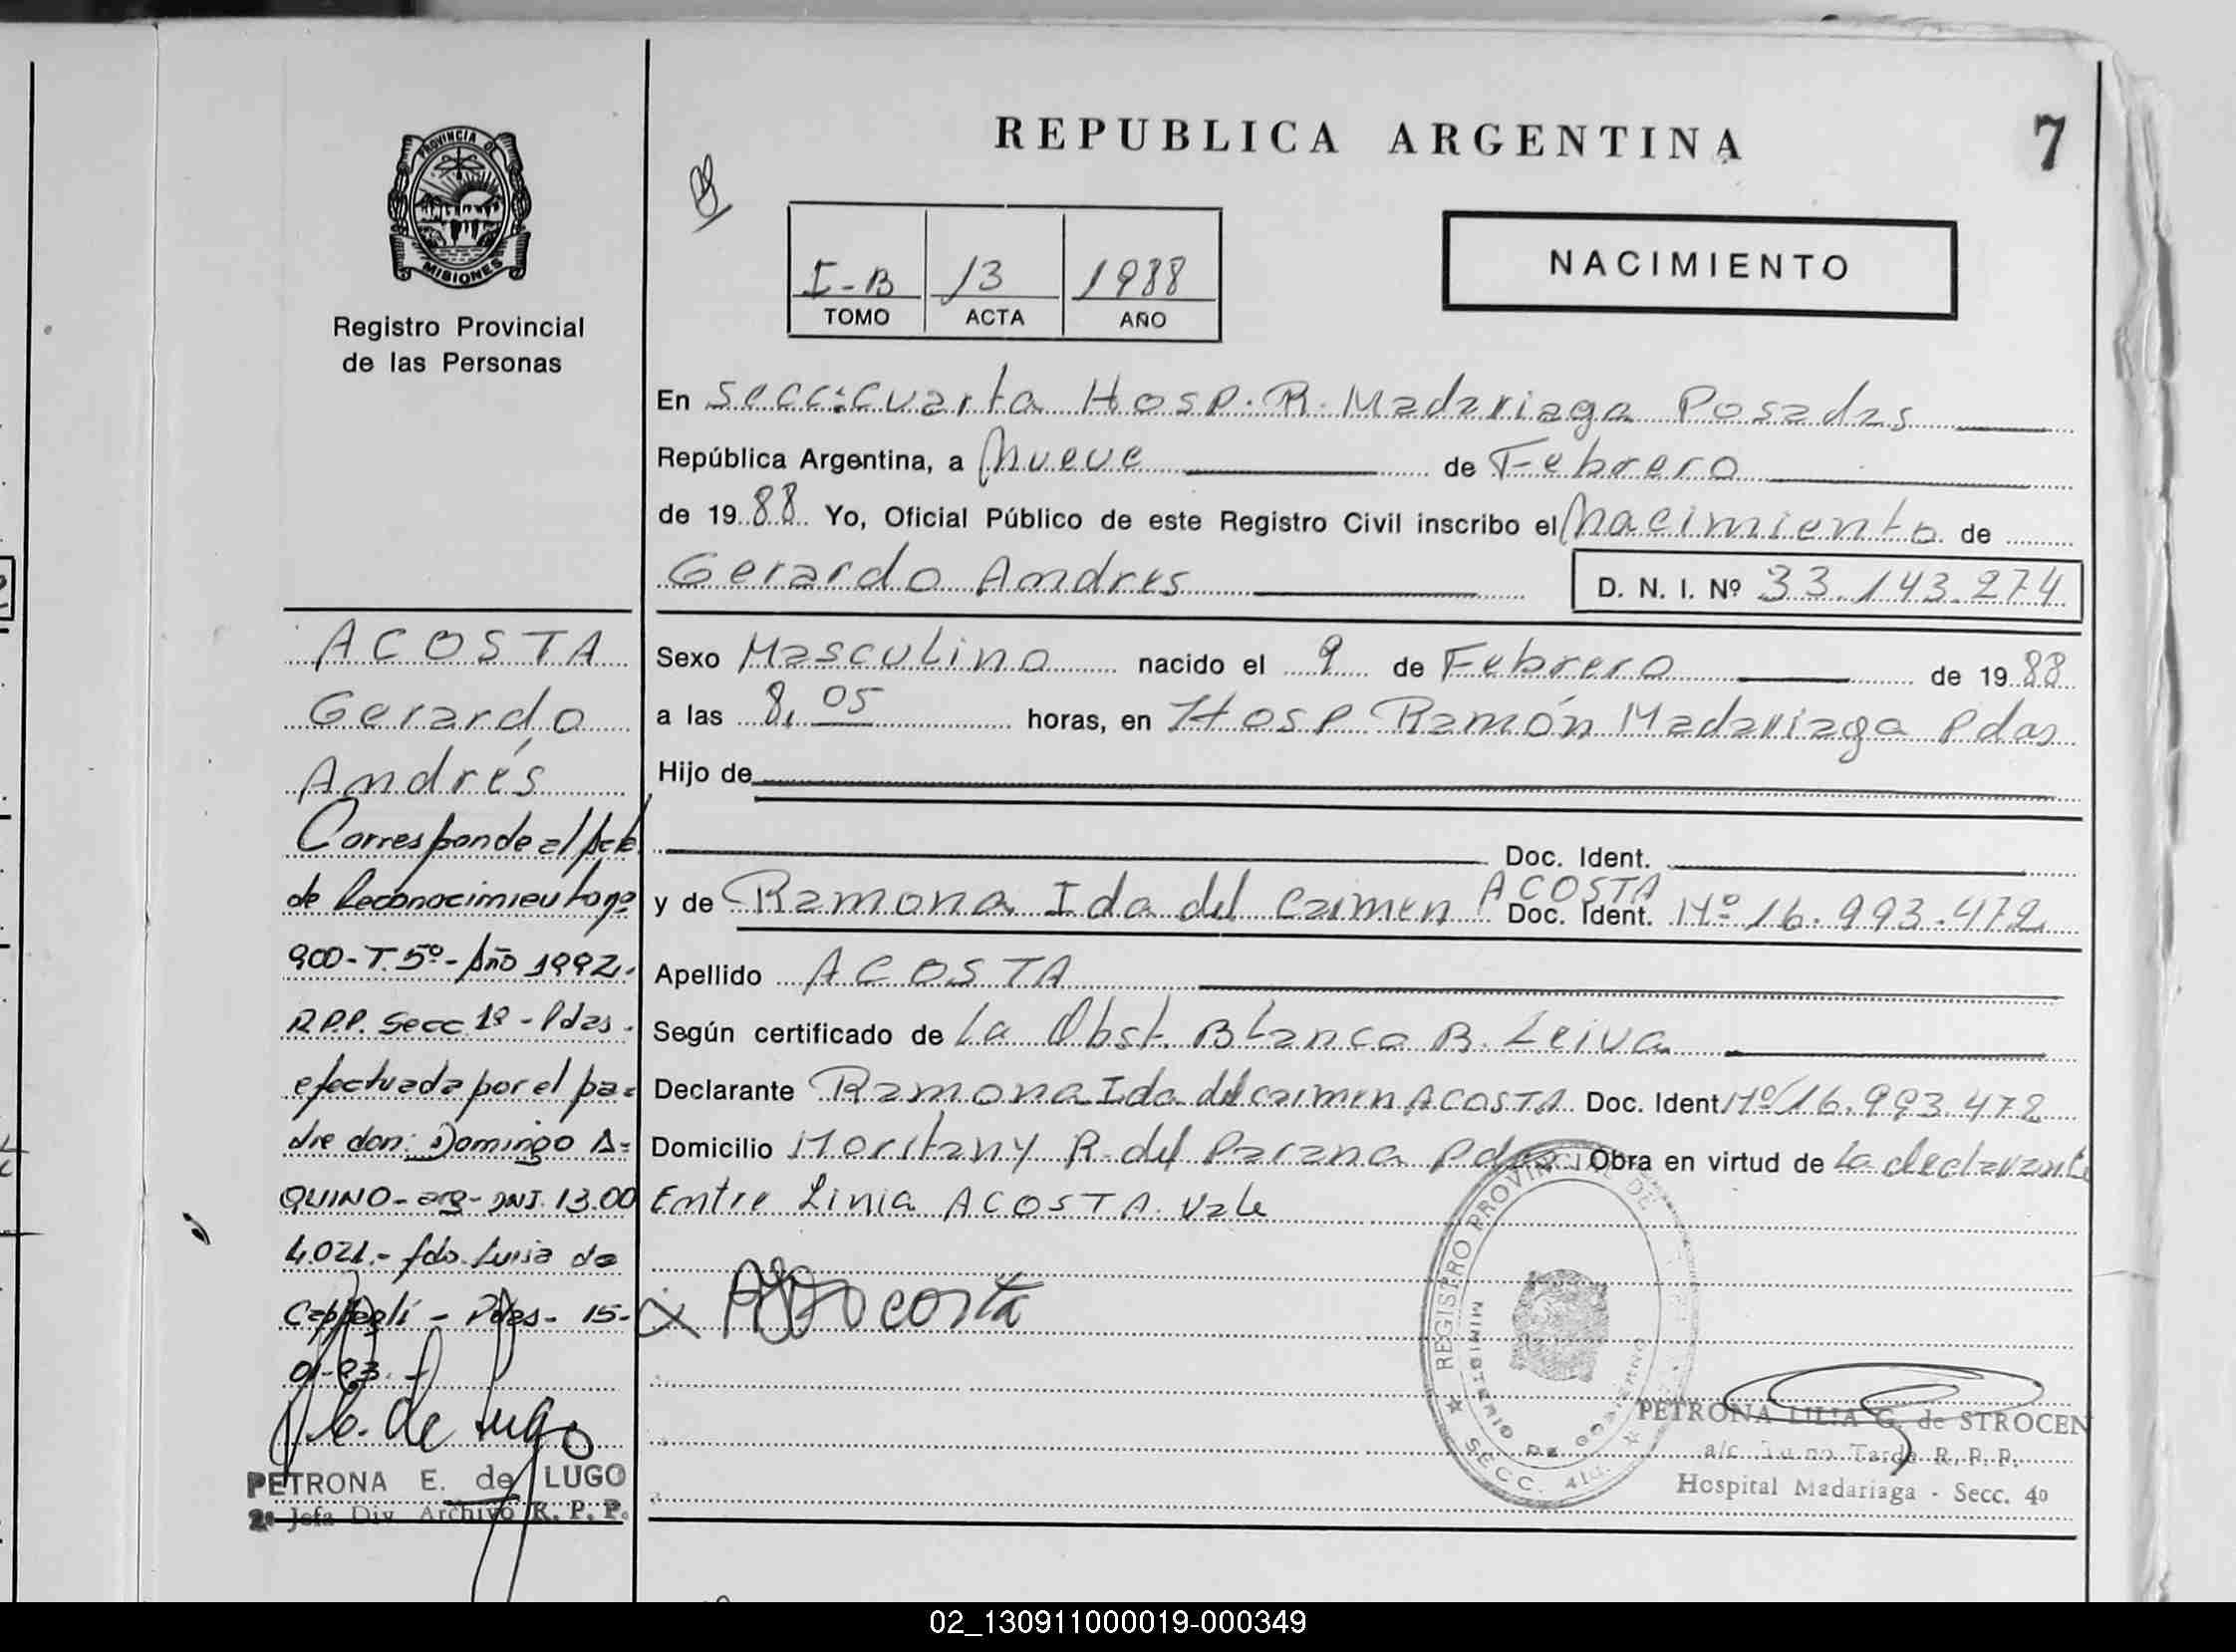 REPUBLICA ARGENTINA
7
PROVINCIA DE
MISIONES
Registro Provincial
de las Personas
I-B 13 1988
TOMO ACTA AÑO
NACIMIENTO
En Secc: Cuarta Hosp. R. Madariaga Posadas
República Argentina, a Nueve de Febrero
de 1988 Yo, Oficial Público de este Registro Civil inscribo el Nacimiento de
Gerardo Andres D. N. I. Nº 33.143.274
Sexo Masculino nacido el 9 de Febrero de 1988
a las 8,05 horas, en Hosp. Ramón Madariaga Pdas
Hijo de
Doc. Ident.
y de Ramona Ida del Carmen ACOSTA Doc. Ident. Nº 16.993.472
Apellido ACOSTA
Según certificado de La Obst. Blanca B. Leiva
Declarante Ramona Ida del Carmen ACOSTA Doc. Ident Nº 16.993.472
Domicilio R. del Parana Obra en virtud de La declarante
Entre Linia ACOSTA. Vale
Acosta
REGISTRO PROVINCIAL DE
MINISTERIO DE GOBIERNO
SECC. 4ta.
PETRONA LILIA G. de STROCEN
a/c. Turno Tarde R. P. P.
Hospital Madariaga - Secc. 4º
ACOSTA
Gerardo
Andrés
Corresponde al Acta
de Reconocimiento nº
900 - T. 5º - Año 1992.
R.P.P. Secc 1º - Pdas.
efectuada por el pa=
dre don: Domingo A=
QUINO - arg - DNI. 13.00
4.021.- fdo. Luisa de
- Pdas - 15-
01-93.
de Lugo
PETRONA E. de LUGO
2ª Jefa Div. Archivo R. P. P.
02_130911000019-000349